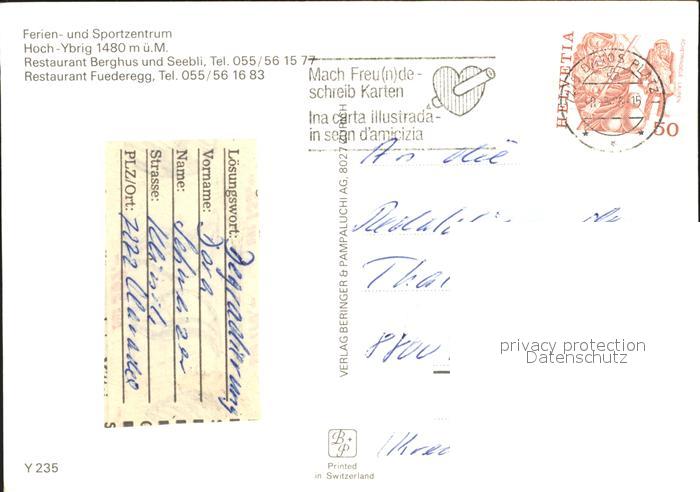 Ferien- und Sportzentrum
Hoch-Ybrig 1480 m ü.M.
Restaurant Berghus und Seebli, Tel. 055/56 15 77
Restaurant Fuederegg, Tel. 055/56 16 83
Mach Freu(n)de-
schreib Karten
Ina carta illustrada-
in segn d'amicizia
HELVETIA
50
DAVOS PLATZ
An die
Thal
8800
privacy protection
Datenschutz
VERLAG BERINGER & PAMPALUCHI AG, 8027 ZÜRICH
Lösungswort: Degradierung
Vorname:
Name:
Strasse:
PLZ/Ort: 7272 Clavadel
B+P
Printed
in Switzerland
Y 235